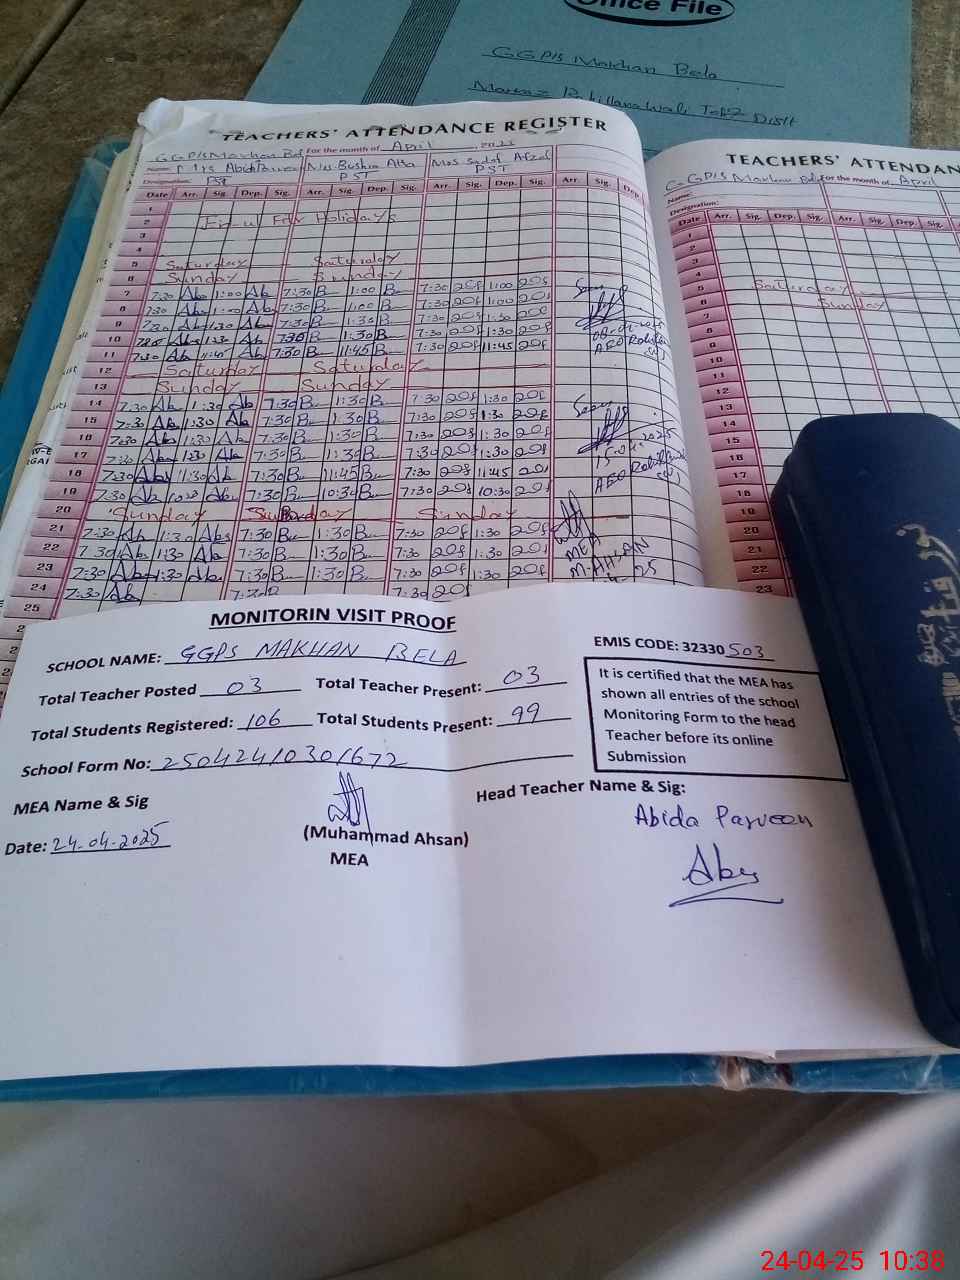 Office File
GGP/S Makhan Bela
TEACHERS' ATTENDANCE REGISTER
GGP/S Makhan Bela For the month of April 2025
Name: Mrs Abida Parveen Miss Bushra Atta Miss Sadaf Afzal
Designation: PST PST
Date Arr. Sig. Dep. Sig. Arr. Sig. Dep. Sig. Arr. Sig. Dep. Sig. Arr. Sig. Dep.
1
2 Eid-ul-Fitr Holidays
3
4
5 Saturday Saturday
6 Sunday Sunday
7 7:30 Ab 1:00 Ab 7:30 B 1:00 B 7:30 1:00
8 7:30 Ab 1:00 Ab 7:30 B 1:00 B 7:30 1:00
9 7:30 Ab 1:30 Ab 7:30 B 1:30 B 7:30 1:30
10 7:30 Ab 1:30 Ab 7:30 B 1:30 B 7:30 1:30
11 7:30 Ab 11:45 Ab 7:30 B 11:45 B 7:30 11:45
12 Saturday Saturday
13 Sunday Sunday
14 7:30 Ab 1:30 Ab 7:30 B 1:30 B 7:30 1:30
15 7:30 Ab 1:30 Ab 7:30 B 1:30 B 7:30 1:30
16 7:30 Ab 1:30 Ab 7:30 B 1:30 B 7:30 1:30
17 7:30 Ab 1:30 Ab 7:30 B 1:30 B 7:30 1:30
18 7:30 Ab 11:30 Ab 7:30 B 11:45 B 7:30 11:45
19 7:30 Ab 10:30 Ab 7:30 B 10:30 B 7:30 10:30
20 Sunday Sunday Sunday
21 7:30 Ab 1:30 Abs 7:30 B 1:30 B 7:30 1:30
22 7:30 Ab 1:30 Ab 7:30 B 1:30 B 7:30 1:30
23 7:30 Ab 1:30 Ab 7:30 B 1:30 B 7:30 1:30
24 7:30 Ab 7:30 B 7:30
25
Seen
Seen
15-04-2025
MEA
M-AHSAN
TEACHERS' ATTENDAN
GGP/S Makhan Bela For the month of April
Name:
Designation:
Date Arr. Sig. Dep. Sig. Arr. Sig. Dep. Sig. Arr.
1
2
3
4
5 Saturday
6 Sunday
7
8
9
10
11
12
13
14
15
16
17
18
19
20
21
22
23
MONITORIN VISIT PROOF
SCHOOL NAME: GGPS MAKHAN BELA
EMIS CODE: 32330503
Total Teacher Posted 03 Total Teacher Present: 03
Total Students Registered: 106 Total Students Present: 99
School Form No: 25042410301672
It is certified that the MEA has
shown all entries of the school
Monitoring Form to the head
Teacher before its online
Submission
MEA Name & Sig
Head Teacher Name & Sig:
Abida Parveen
Date: 24.04.2025
(Muhammad Ahsan)
MEA
24-04-25 10:38